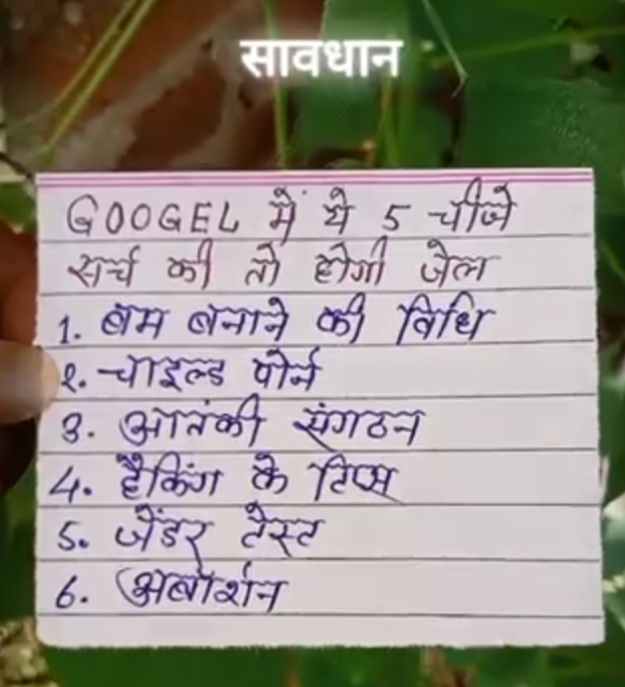 सावधान
GOOGEL में ये 5 चीजे
सर्च की तो होगी जेल
1. बम बनाने की विधि
२. चाइल्ड पोर्न
3. आतंकी संगठन
4. हैकिंग के टिप्स
5. जेंडर टेस्ट
6. अबॉर्शन